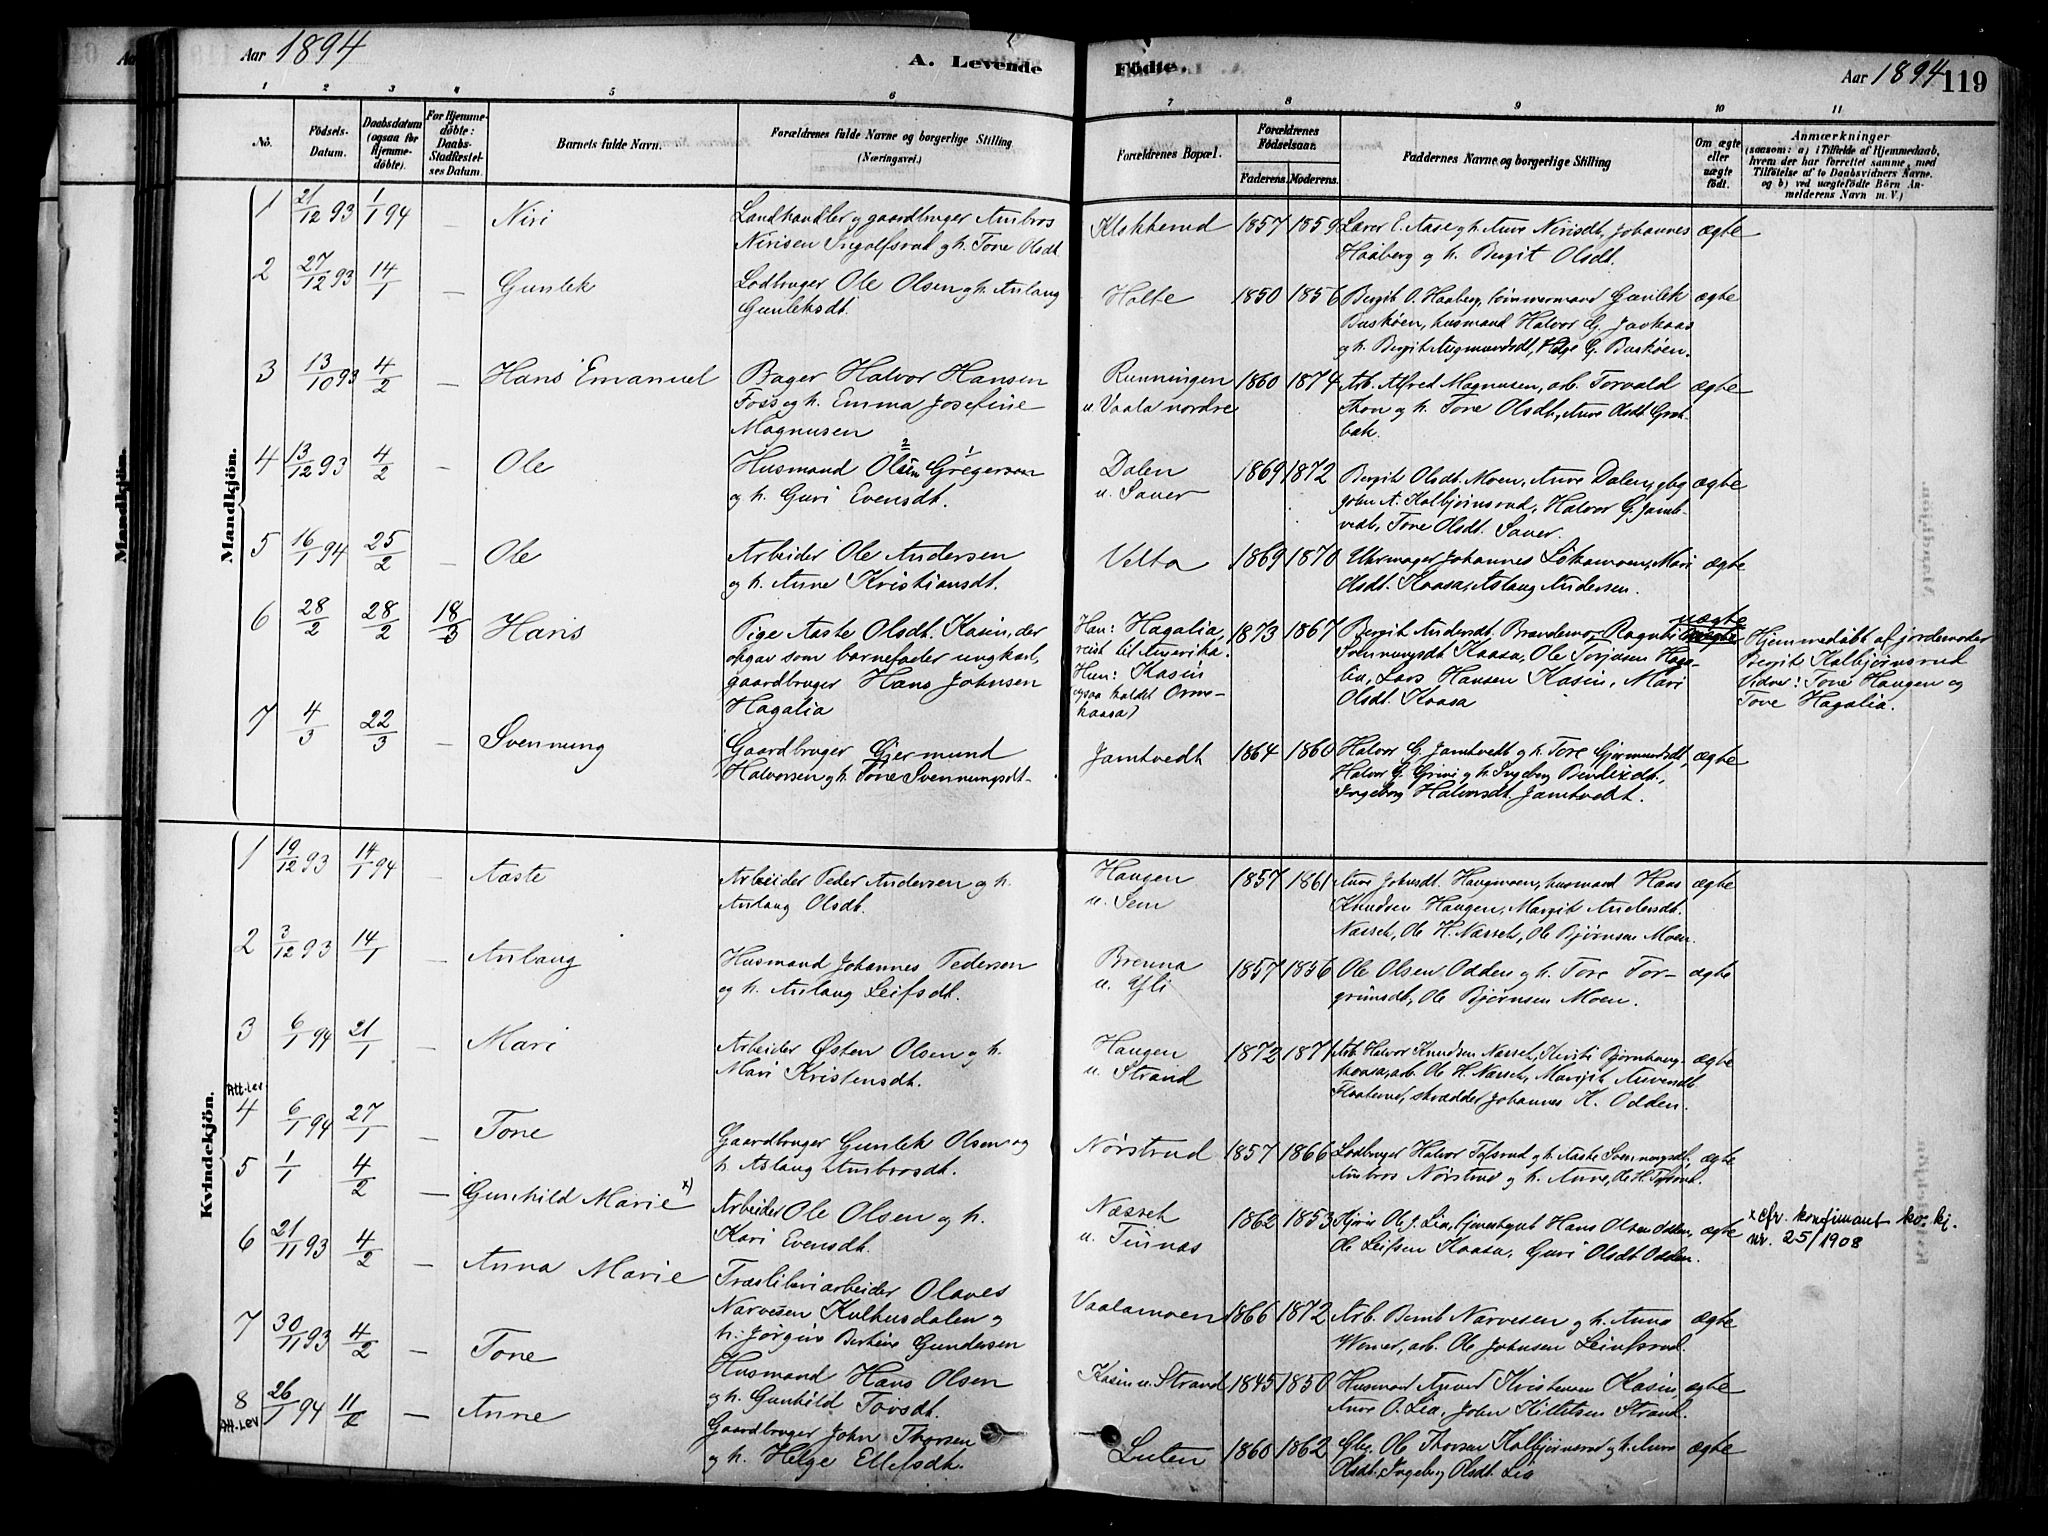 Aar 1894
A. Levende
Födte.
Aar 1894 119
1 2 3 4 5 6 7 8 9 10 11
No.
Födsels-
Datum.
Daabsdatum
(ogsaa for
Hjemme-
döbte).
For Hjemme-
döbte:
Daabs-
Stadfæstel-
ses Datum.
Barnets fulde Navn.
Forældrenes fulde Navne og borgerlige Stilling
(Næringsvei.)
Forældrenes Bopæl.
Forældrenes
Födselsaar.
Faderens. Moderens.
Faddernes Navne og borgerlige Stilling
Om ægte
eller
uægte
födt.
Anmærkninger
(saasom: a) i Tilfælde af Hjemmedaab,
hvem der har forrettet samme, med
Tilföielse af to Daabsvidners Navne.
og b) ved uægtefödte Börn An-
melderens Navn m. V.)
Mandkjön.
1 21/12 93 1/1 94 – Niri
Landhandler og gaardbruger Ambros
Nirisen Ingolfsrud og h. Tone Olsdt.
Klokkerud 1857 1859
Laver E. Aase og h. Anne Nirisdt, Johannes
Haaberg og h. Bergit Olsdt.
ægte
2 27/12 93 14/1 – Gunlek
Lodbruger Ole Olsen og h. Aslaug
Gunleksdt.
Holte 1850 1856
Bergit O. Haaberg, tömmermand Gunlek
Buskøen, husmand Halvor G. Javkaas
og h. Bergit Aasmundsdt, Helge G. Buskøen.
ægte
3 13/10 93 4/2 – Hans Emanuel
Bager Halvor Hansen
Foss og h. Emma Josefine
Magnusen
Runningen
u. Vaala nordre
1860 1874
Arb. Alfred Magnusen, arb. Torvald
Thon og h. Tone Olsdt., Anne Olsdt Grot-
bæk.
ægte
4 13/12 93 4/2 – Ole
Husmand Olsen Gregersen
og h. Guri Evensdt.
Dalen
u. Sauer
1869 1872
Bergit Olsdt. Moen, Anne Dalen, gbg
John A. Kolbjørnsrud, Halvor G. Jamt-
vedt, Tone Olsdt. Sauer.
ægte
5 16/1 94 25/2 – Ole
Arbeider Ole Andersen
og h. Anne Kristiansdt.
Velta 1869 1870
Uhrmager Johannes Lökamoen, Mari
Olsdt. Kaasa, Aslaug Andersen.
ægte
6 28/2 28/2 18/3 Hans
Pige Aaste Olsdt. Kasin, der
opgav som barnefader ungkarl,
gaardbruger Hans Johnsen
Hagalia
Han: Hagalia,
reist til Amerika.
Hun: Kasin
(ogsaa kaldet Orme-
kaasa)
1873 1867
Bergit Andersdt. Brandemo, Ragnhi
Svennungsdt Kaasa, Ole Torjusen Haga-
lia, Lars Hansen Kasin, Mari
Olsdt. Kaasa
uægte
Hjemmedöbt af jordemoder
Bergit Kolbjørnsrud
Vidner: Tone Haugen og
Tove Hagalia.
7 4/3 22/3 – Svennung
Gaardbruger Gjermund
Halvorsen og h. Tone Svennungsdt.
Jamtvedt 1864 1860
Halvor G. Jamtvedt og h. Tone Gjermundsdt,
Halvor G. Grini og h. Ingeborg Bendixdt.,
Ingeborg Halvorsdt. Jamtvedt.
ægte
Kvindekjön.
1 19/12 93 14/1 94 – Aaste
Arbeider Peder Andersen og h.
Aslaug Olsdt.
Haugen
u. Sem
1857 1861
Anne Johnsdt. Haugmoen, husmand Hans
Knudsen Haugen, Margit Andersdt.
Næsset, Ole H. Næsset, Ole Bjørnsen Moen.
ægte
2 3/12 93 14/1 – Aslaug
Husmand Johannes Pedersen
og h. Aslaug Leifsdt.
Brenna
u. Yli
1857 1856
Ole Olsen Odden og h. Tore Tor-
grimsdt, Ole Bjørnsen Moen.
ægte
3 6/1 94 21/1 – Mari
Arbeider Østen Olsen og h.
Mari Kristensdt.
Haugen
u. Strand
1872 1871
Arb. Halvor Knudsen Næsset, Kirsti Bjørnhaug-
kaasa, arb. Ole H. Næsset, Margit Anvensdt.
Flaatene, skrædder Johannes K. Odden.
ægte
Att. Lev
4 6/1 94 27/1 – Tone
Gaardbruger Gunlek Olsen og
h. Aslaug Ambrosdt.
Nørstrud 1857 1866
Lodbruger Halvor Tofsrud og h. Aaste Svennungsdt.
Ambros Nørstrud og h. Anne, H. Tofsrud.
ægte
5 1/1 4/2 – Gunhild Marie x)
Arbeider Ole Olsen og h.
Kari Evensdt.
Næsset
u. Tinnæs
1862 1853
Kjøre Ole J. Lia, tjenestegut Hans Olsen Odden,
Ole Leifsen Kaasa, Guri Olsdt Odden.
ægte
x cfr. konfirmant ko. kj.
nr. 25/1908
6 21/11 93 4/2 – Anna Marie
Træsliberiarbeider Olaves
Narvesen Kulhusdalen og
h. Jørgine Berthine Gundersen
Vaalamoen 1866 1872
Arb. Bernt Narvesen og h. Anna
Werner, arb. Ole Johnsen Leinfsrud.
ægte
7 30/11 93 4/2 – Tone
Husmand Hans Olsen
og h. Gunhild Tovsdt.
Kasin u. Strand 1845 1850
Husmand Amund Kristensen Kasin
Anne O. Lia, John Killitsen Strand.
ægte
8 26/1 94 11/2 – Anne
Att. Lev
Gaardbruger John Thorsen
og h. Helge Ellefsdt.
Luten 1860 1862
Gbg. Ole Thorsen Kolbjørnsrud og h. Anne
Olsdt. Ingeborg Olsdt. Lia
ægte